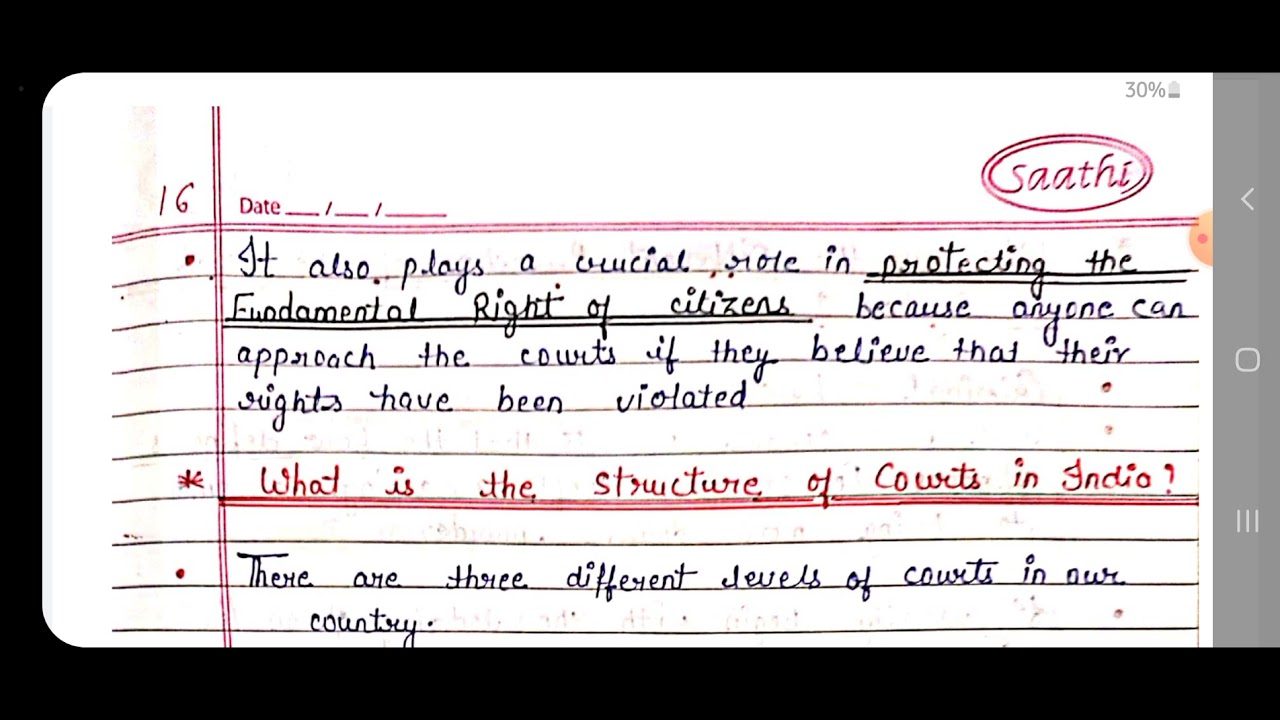 30%
saathi
16
Date __/__/____
• It also plays a crucial role in protecting the
Fundamental Right of citizens because anyone can
approach the courts if they believe that their
rights have been violated
* What is the structure of Courts in India?
• There are three different levels of courts in our
country.